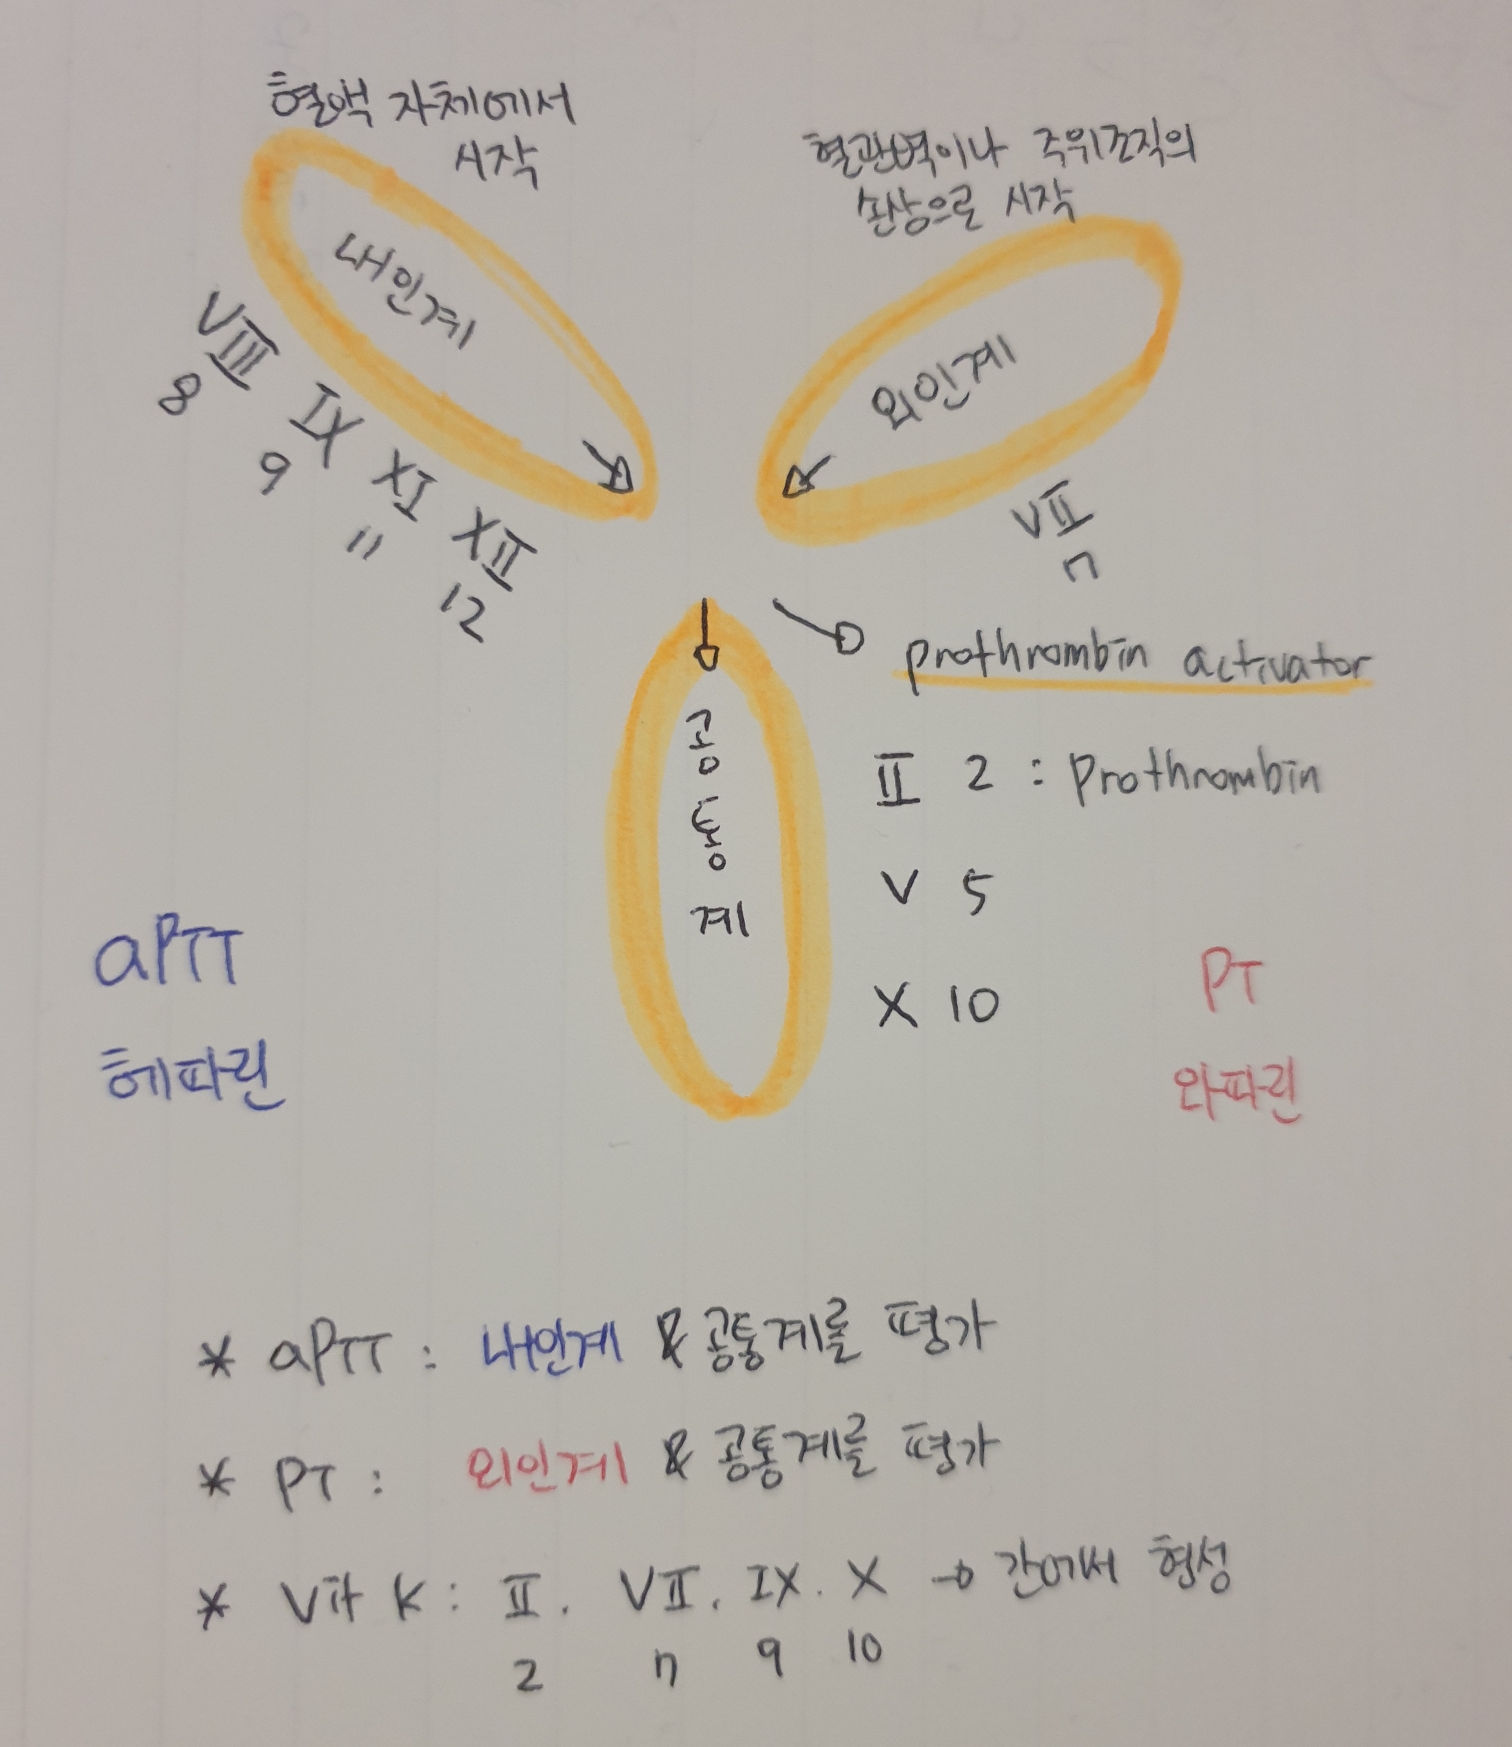 혈액 자체에서
시작
혈관벽이나 주위조직의
손상으로 시작
내인계
외인계
VIII IX XI XII
8 9 11 12
VII
7
prothrombin activator
공통계
II 2 : prothrombin
V 5
X 10
aPTT
헤파린
PT
와파린
* aPTT : 내인계 & 공통계를 평가
* PT : 외인계 & 공통계를 평가
* Vit K : II. VII. IX. X → 간에서 형성
2 7 9 10